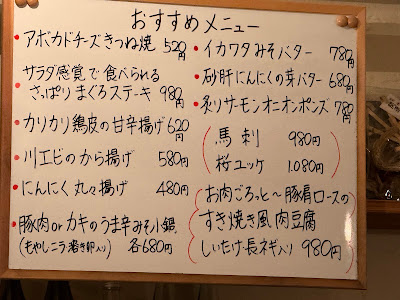 おすすめメニュー
・アボカドチーズきつね焼 520円
・サラダ感覚で食べられる
さっぱりまぐろステーキ 980円
・カリカリ鶏皮の甘辛揚げ 620円
・川エビのから揚げ 580円
・にんにく丸々揚げ 480円
・豚肉orカキのうま辛みそ小鍋
(もやしニラ溶き卵入り) 各680円
・イカワタみそバター 780円
・砂肝にんにくの芽バター 680円
・炙りサーモンオニオンポンズ 780円
馬刺 980円
桜ユッケ 1.080円
お肉ごろっと〜豚肩ロースの
すき焼き風肉豆腐
しいたけ・長ネギ入り 980円